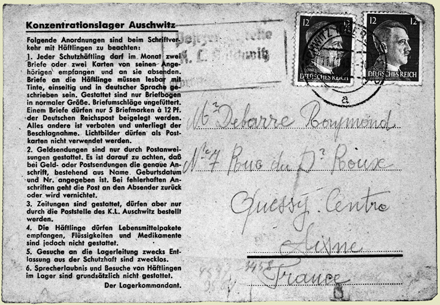 Konzentrationslager Auschwitz
Folgende Anordnungen sind beim Schriftver-
kehr mit Häftlingen zu beachten:
1. Jeder Schutzhäftling darf im Monat zwei
Briefe oder zwei Karten von seinen Ange-
hörigen empfangen und an sie absenden.
Briefe an Häftlinge müssen lesbar mit
Tinte, einseitig und in deutscher Sprache ge-
schrieben sein. Gestattet sind nur Briefbogen
in normaler Größe. Briefumschläge ungefüttert.
Einem Briefe dürfen nur 5 Briefmarken à 12 Pf.
der Deutschen Reichspost beigelegt werden.
Alles andere ist verboten und unterliegt der
Beschlagnahme. Lichtbilder dürfen als Post-
karten nicht verwendet werden.
2. Geldsendungen sind nur durch Postanwei-
sungen gestattet. Es ist darauf zu achten, daß
bei Geld- oder Postsendungen die genaue An-
schrift, bestehend aus Name, Geburtsdatum
und Nr. angegeben ist. Bei fehlerhaften An-
schriften geht die Post an den Absender zurück
oder wird vernichtet.
3. Zeitungen sind gestattet, dürfen aber nur
durch die Poststelle des K.L. Auschwitz bestellt
werden.
4. Die Häftlinge dürfen Lebensmittelpakete
empfangen, Flüssigkeiten und Medikamente
sind jedoch nicht gestattet.
5. Gesuche an die Lagerleitung zwecks Ent-
lassung aus der Schutzhaft sind zwecklos.
6. Sprecherlaubnis und Besuche von Häftlingen
im Lager sind grundsätzlich nicht gestattet.
Der Lagerkommandant.
12 12
DEUTSCHES REICH
12 12
DEUTSCHES REICH
a
Mr Debarre Raymond
No 7 Rue du Dr Roux
Quessy-Centre
Aisne
France